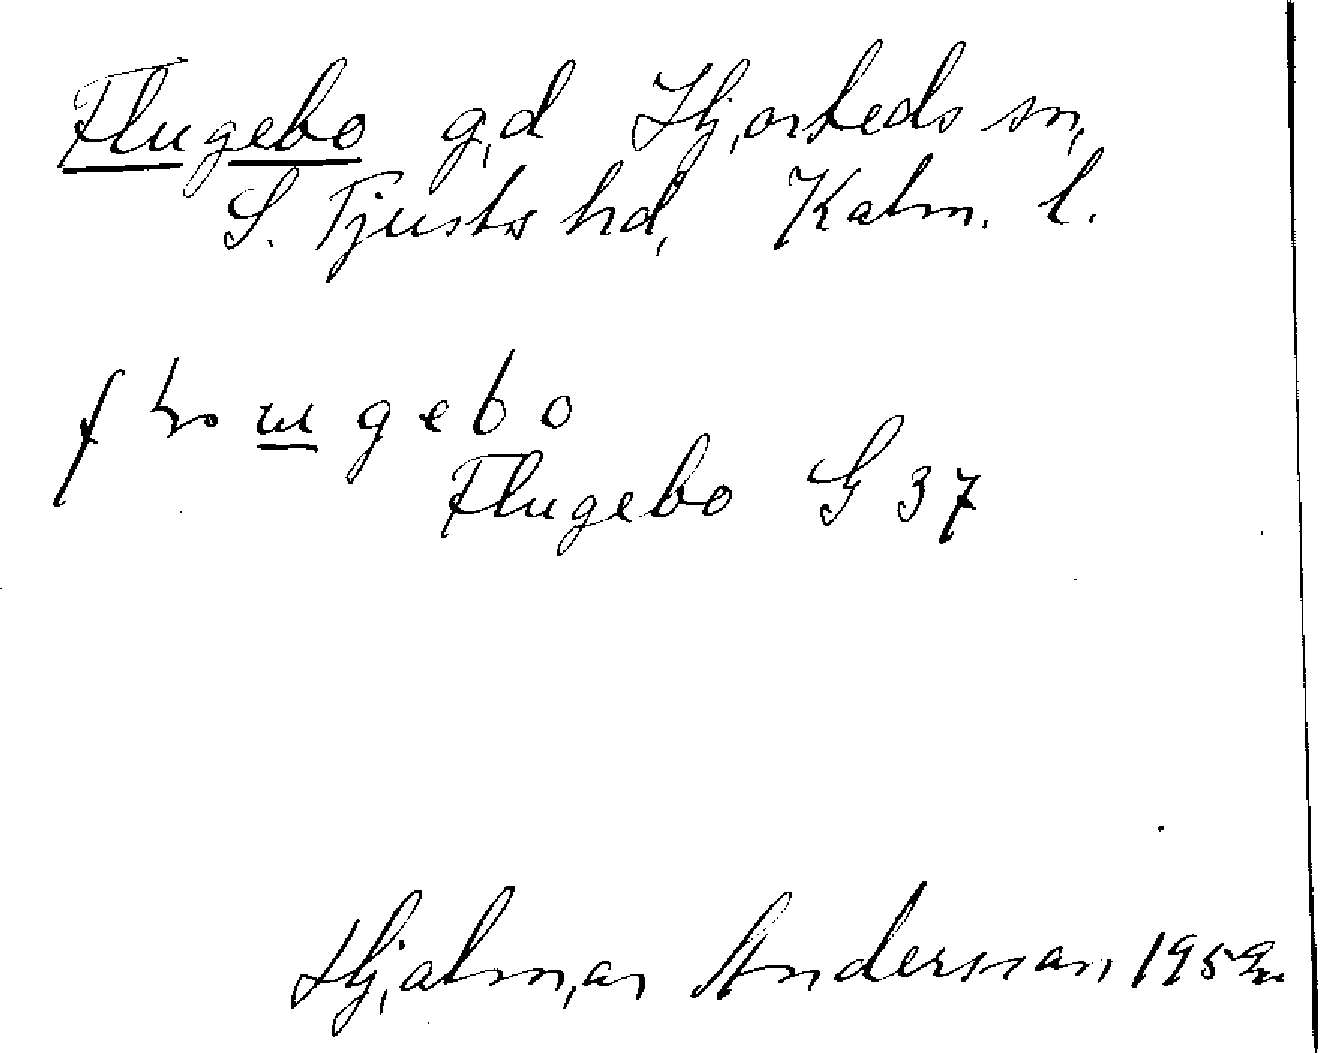 Flugebo gd Hjorteds sn,
S. Tjusts hd, Kalm. l.
Flugebo G 37
Hjalmar Andersson 1959